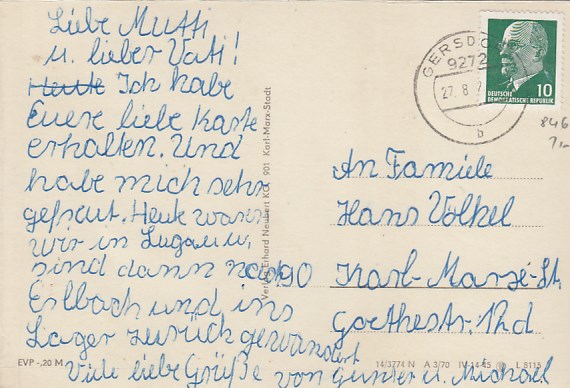 Liebe Mutti
u. lieber Vati!
Heute Ich habe
Euere liebe Karte
erhalten. Und
habe mich sehr
gefreut. Heute waren
wir in Lugau u.
sind dann nach
Erlbach und ins
Lager zurück gewandert
Viele liebe Grüße von Günter u. Michael
GERSDO
9272
27. 8.
b
DEUTSCHE
DEMOKRATISCHE REPUBLIK
10
846
7,-
An Famiele
Hans Völkel
90 Karl-Marx-St.
Goethestr. 12d
Verlag Erhard Neubert KG, 901 Karl-Marx-Stadt
EVP -,20 M
14/3774 N A 3/70 IV-14-45 L 8115